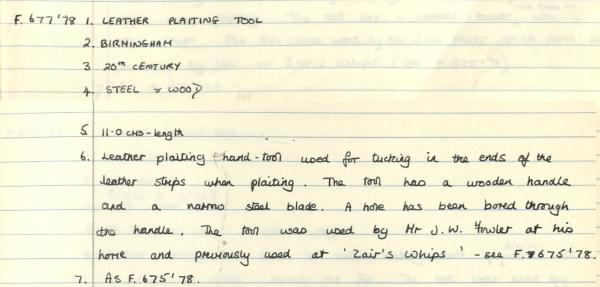 F.677'78 1. LEATHER PLAITING TOOL
2. BIRMINGHAM
3 20TH CENTURY
4. STEEL & WOOD
5. 11.0 CMS - length
6. Leather plaiting hand-tool used for tucking in the ends of the
leather strips when plaiting. The tool has a wooden handle
and a narrow steel blade. A hole has been bored through
the handle. The tool was used by Mr J.W. Fowler at his
home and previously used at 'Zair's Whips' - see F.675'78.
7. AS F.675'78.